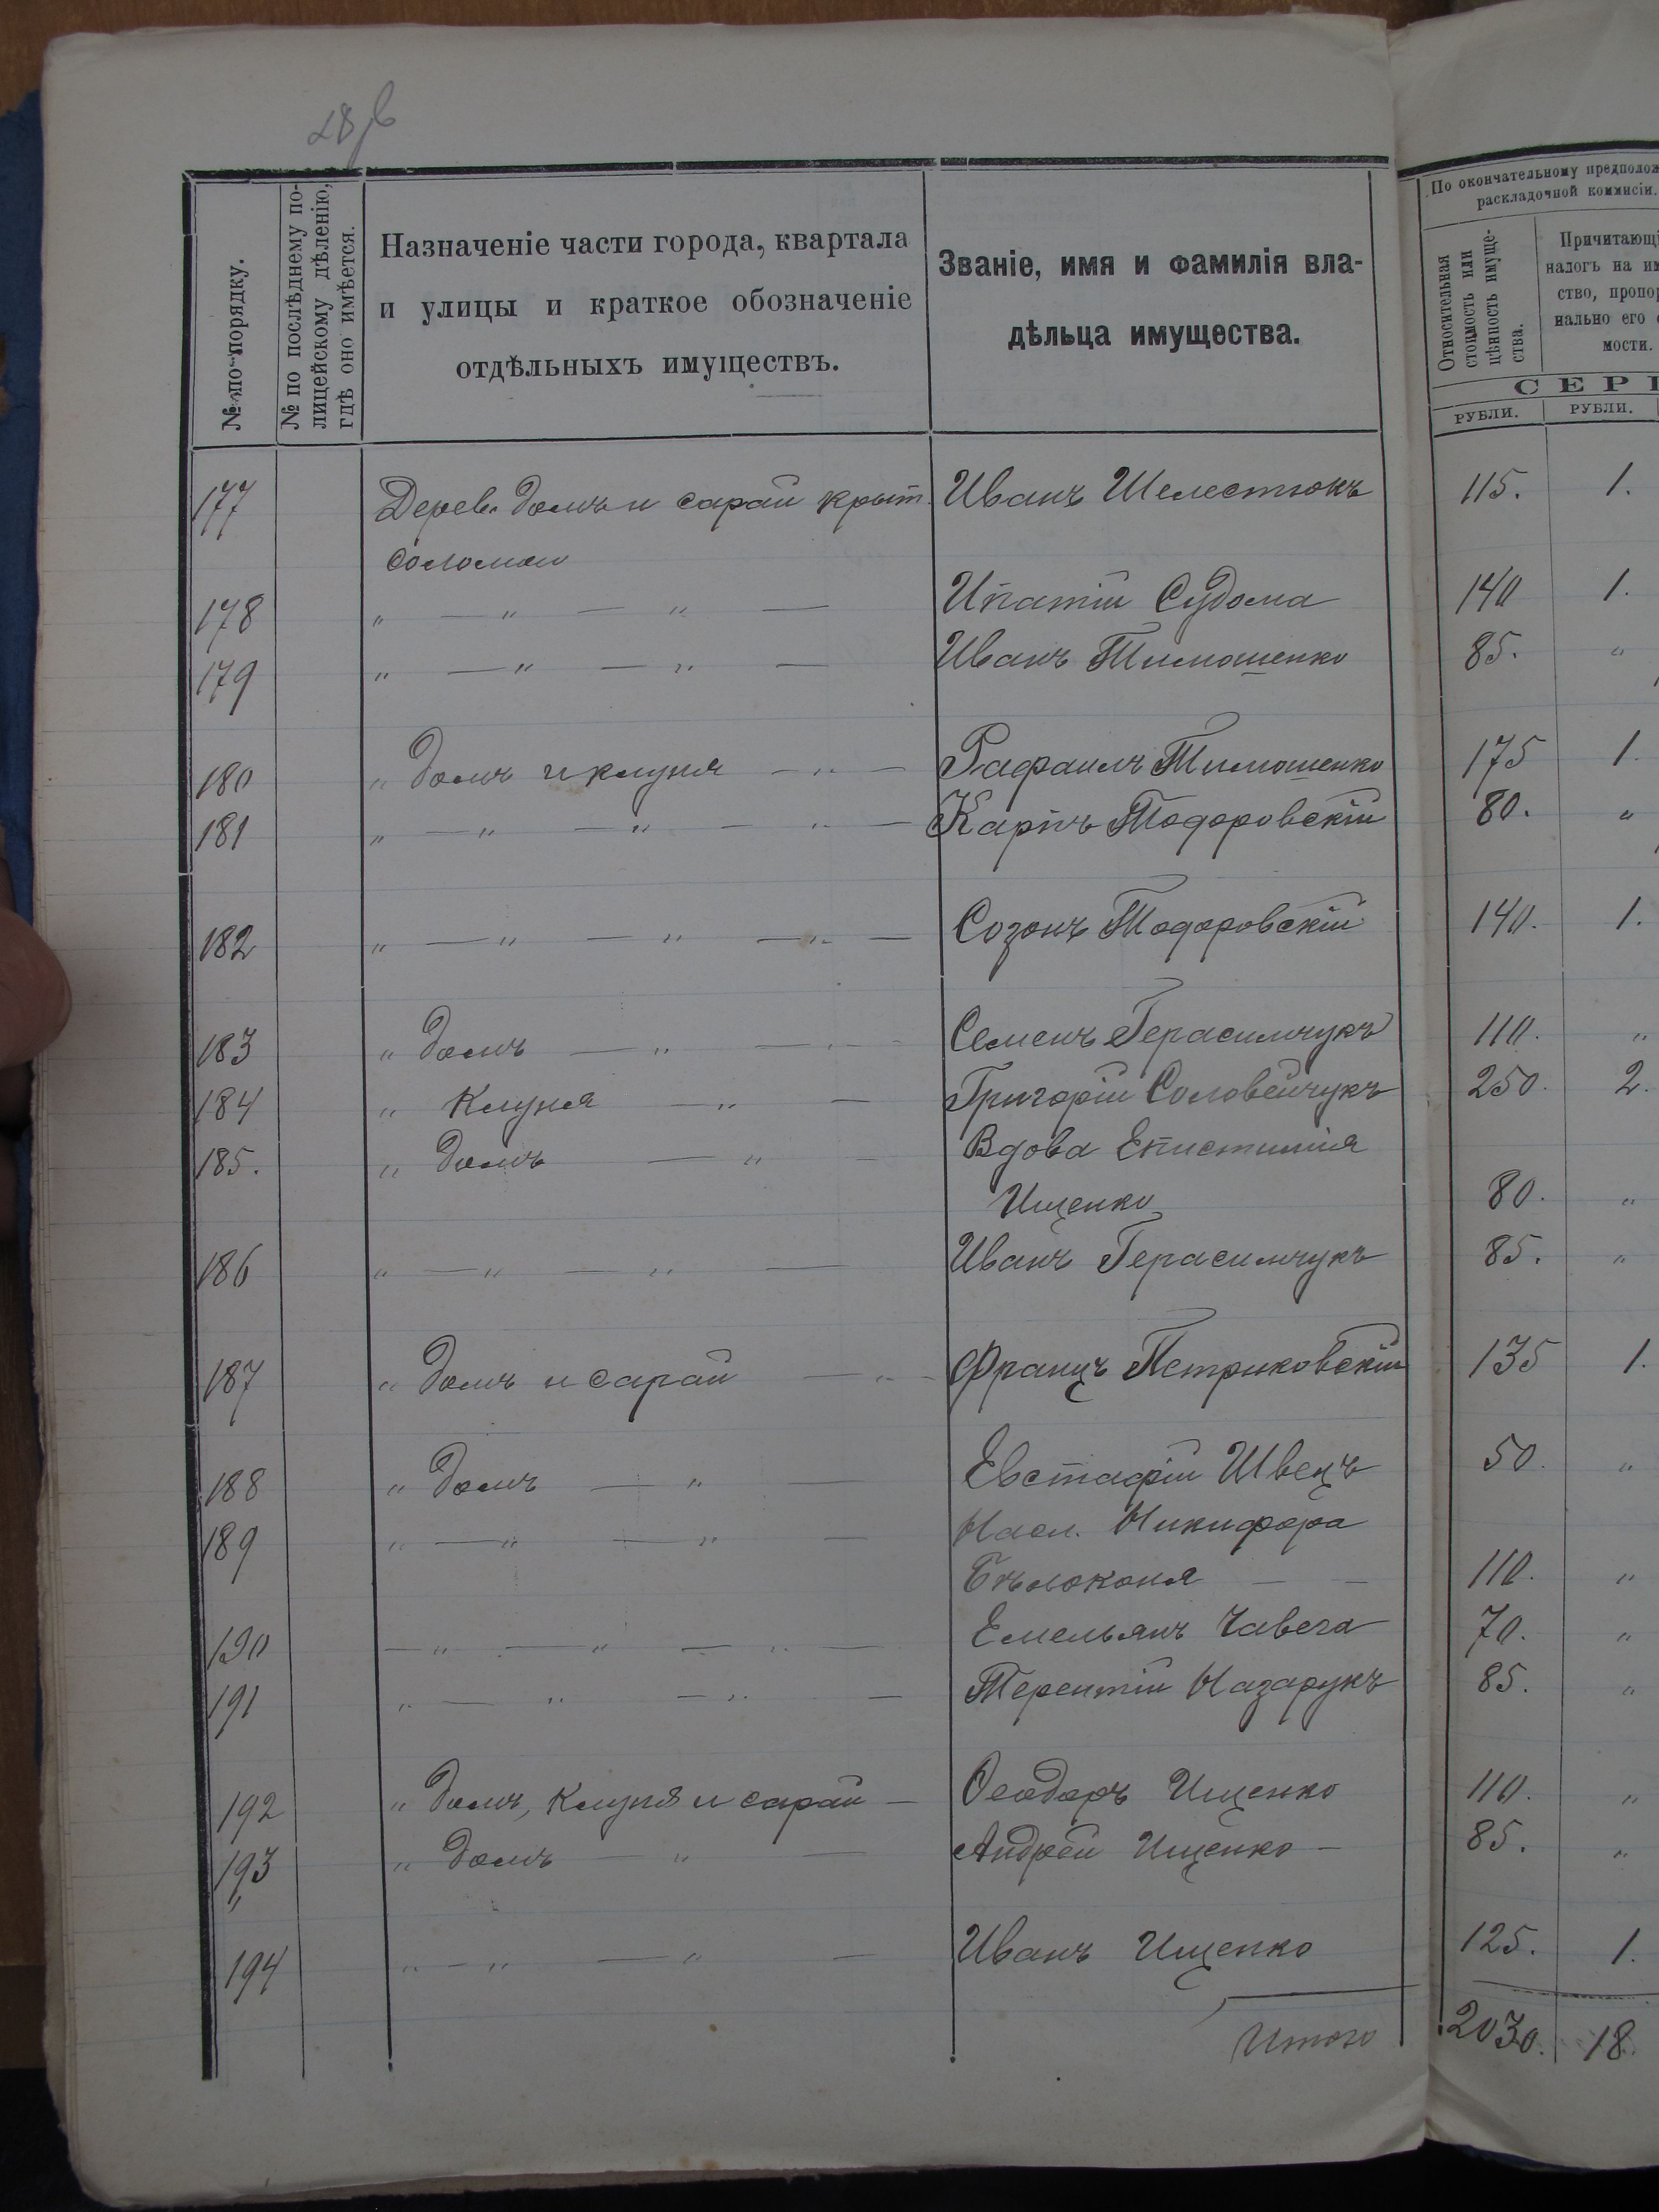 № по порядку.
№ по послѣднему по-
лицейскому дѣленію,
гдѣ оно имѣется.
Назначеніе части города, квартала
и улицы и краткое обозначеніе
отдѣльныхъ имуществъ.
Званіе, имя и фамилія вла-
дѣльца имущества.
По окончательному предполож
раскладочной коммисіи.
Относительная
стоимость или
цѣнность имуще-
ства.
Причитающі
налогъ на им
ство, пропор
нально его с
мости.
СЕРЕ
РУБЛИ. РУБЛИ.
177 Дерев. домъ и сарай крыт. Иванъ Шелестюкъ 115. 1.
соломою
178 " — " — " — Ипатій Судома 140 1.
179 " — " — " — Иванъ Тимошенко 85. "
180 " домъ и клуня — " — Рафаилъ Тимошенко 175 1.
181 " — " — " — " — Карпъ Тодоровскій 80. "
182 " — " — " — " — Созонъ Тодоровскій 140. 1.
183 " домъ — " — " — Семенъ Герасимчукъ 110. "
184 " Клуня — " — Григорій Соловейчукъ 250. 2.
185. " домъ — " — Вдова Епистимія
Ищенко 80. "
186 " — " — " — Иванъ Герасимчукъ 85. "
187 " домъ и сарай — " — Францъ Петриковскій 135 1.
188 " домъ — " — Евстафій Швецъ 50. "
189 " — " — " — Насл. Никифора
Бѣлоконя — — 110. "
190 — " — " — " — Емельянъ Чавега 70. "
191 " — " — " — Терентій Назарукъ 85. "
192 " домъ, клуня и сарай — Ѳеодоръ Ищенко 110. "
193 " домъ — " — Андрей Ищенко — 85. "
194 " — " — " — Иванъ Ищенко 125. 1.
Итого 2030. 18.